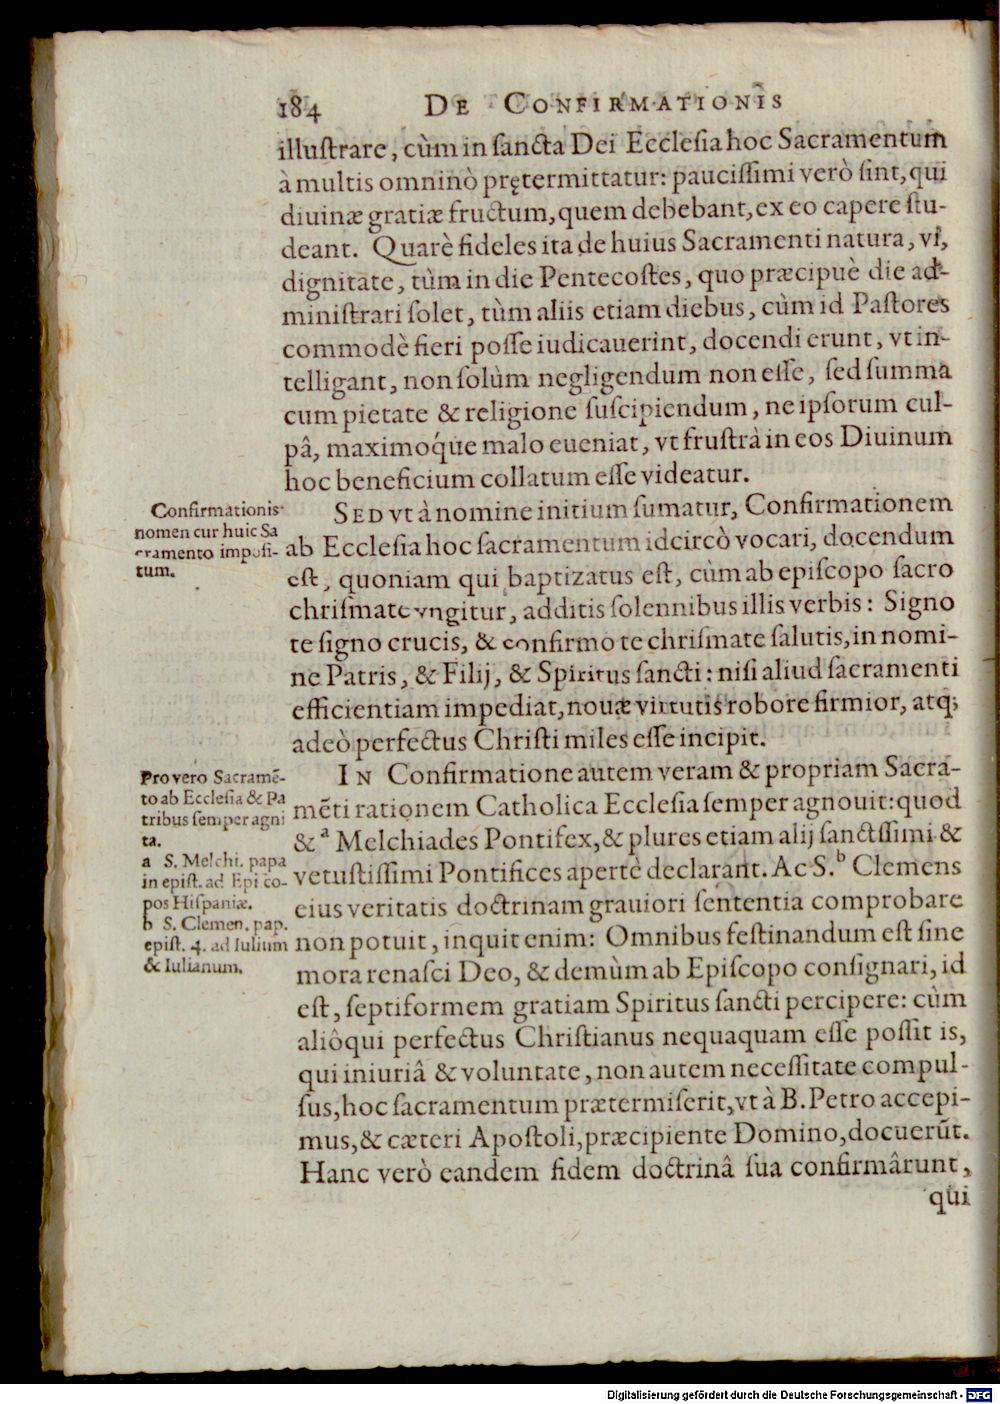 184 DE CONFIRMATIONIS
illuſtrare, cùm in ſancta Dei Eccleſia hoc Sacramentum
à multis omninò prętermittatur: pauciſſimi verò ſint, qui
diuinæ gratiæ fructum, quem debebant, ex eo capere ſtu-
deant. Quarè fideles ita de huius Sacramenti natura, vi,
dignitate, tùm in die Pentecoſtes, quo præcipuè die ad-
miniſtrari ſolet, tùm aliis etiam diebus, cùm id Paſtores
commodè fieri poſſe iudicauerint, docendi erunt, vt in-
telligant, non ſolùm negligendum non eſſe, ſed ſumma
cum pietate & religione ſuſcipiendum, ne ipſorum cul-
pâ, maximoq́ue malo eueniat, vt fruſtrà in eos Diuinum
hoc beneficium collatum eſſe videatur.
Confirmationis
nomen cur huic Sa
cramento impoſi-
tum.
SED vt à nomine initium ſumatur, Confirmationem
ab Eccleſia hoc ſacramentum idcircò vocari, docendum
eſt, quoniam qui baptizatus eſt, cùm ab epiſcopo ſacro
chriſmate vngitur, additis ſolennibus illis verbis: Signo
te ſigno crucis, & confirmo te chriſmate ſalutis, in nomi-
ne Patris, & Filij, & Spiritus ſancti: niſi aliud ſacramenti
efficientiam impediat, nouæ virtutis robore firmior, atq;
adeò perfectus Chriſti miles eſſe incipit.
Pro vero Sacramē-
to ab Eccleſia & Pa
tribus ſemper agni
ta.
a S. Melchi. papa
in epiſt. ad Epiſco-
pos Hiſpaniæ.
b S. Clemen. pap.
epiſt. 4. ad Iulium
& Iulianum.
IN Confirmatione autem veram & propriam Sacra-
mēti rationem Catholica Eccleſia ſemper agnouit: quod
& ᵃ Melchiades Pontifex, & plures etiam alij ſanctſſimi &
vetuſtiſſimi Pontifices apertè declarant. Ac S. ᵇ Clemens
eius veritatis doctrinam grauiori ſententia comprobare
non potuit, inquit enim: Omnibus feſtinandum eſt ſine
mora renaſci Deo, & demùm ab Epiſcopo conſignari, id
eſt, ſeptiformem gratiam Spiritus ſancti percipere: cùm
aliôqui perfectus Chriſtianus nequaquam eſſe poſſit is,
qui iniuriâ & voluntate, non autem neceſſitate compul-
ſus, hoc ſacramentum prætermiſerit, vt à B. Petro accepi-
mus, & cæteri Apoſtoli, præcipiente Domino, docuerūt.
Hanc verò eandem fidem doctrinâ ſua confirmârunt,
qui
Digitalisierung gefördert durch die Deutsche Forschungsgemeinschaft - DFG